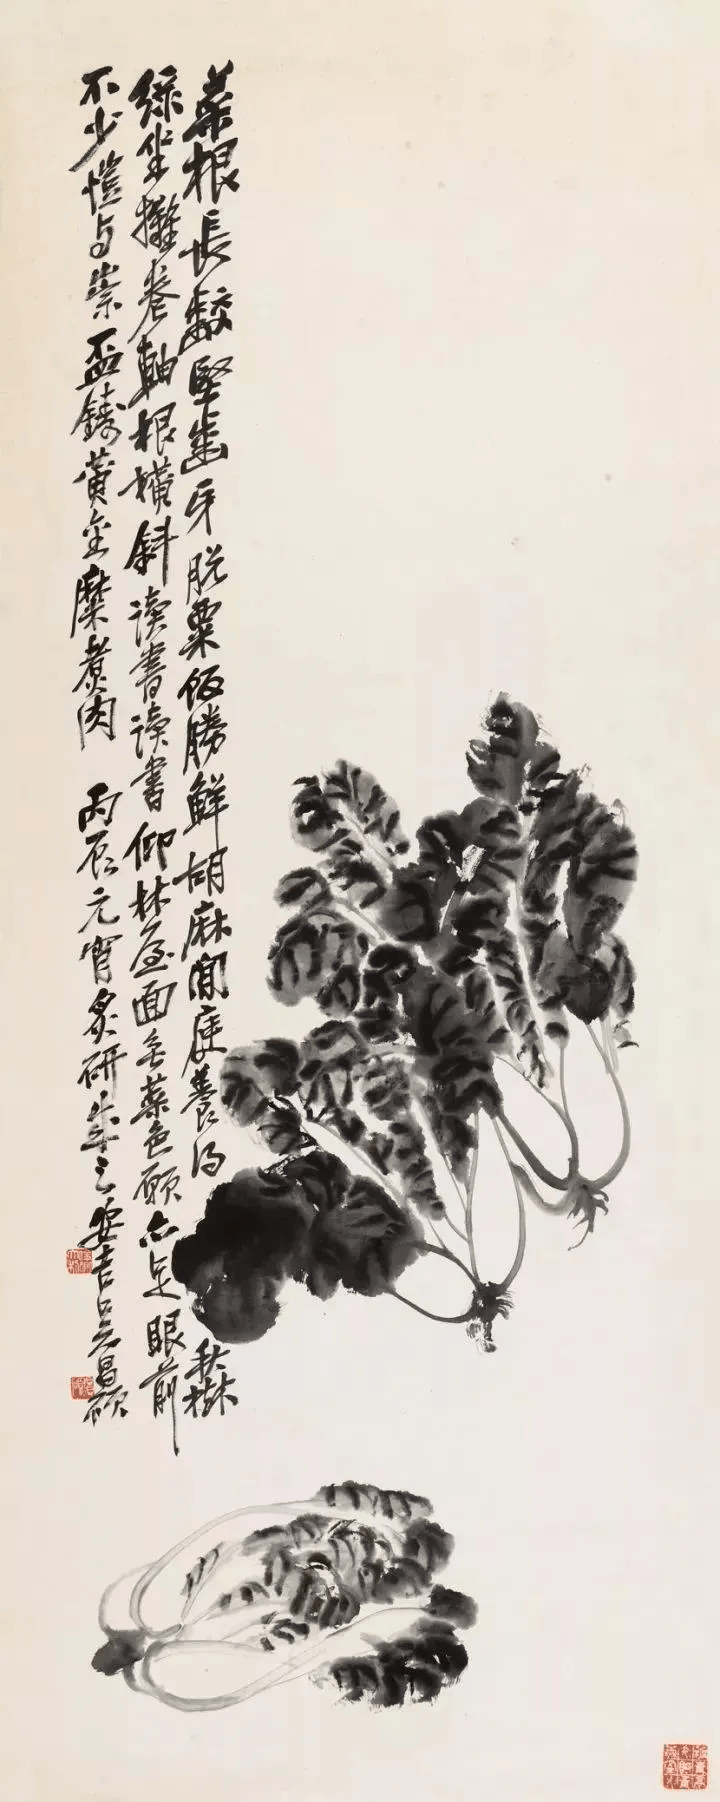 菜根長齩堅齒牙脫粟飯勝鮮胡麻閒庭養得秋樹
綠坐攤卷軸根橫斜讀書讀書仰林屋面無菜色願亦足眼前
不少愷与崇盃鑄黃金糜煮肉 丙辰元宵炙研成之安吉吳昌碩